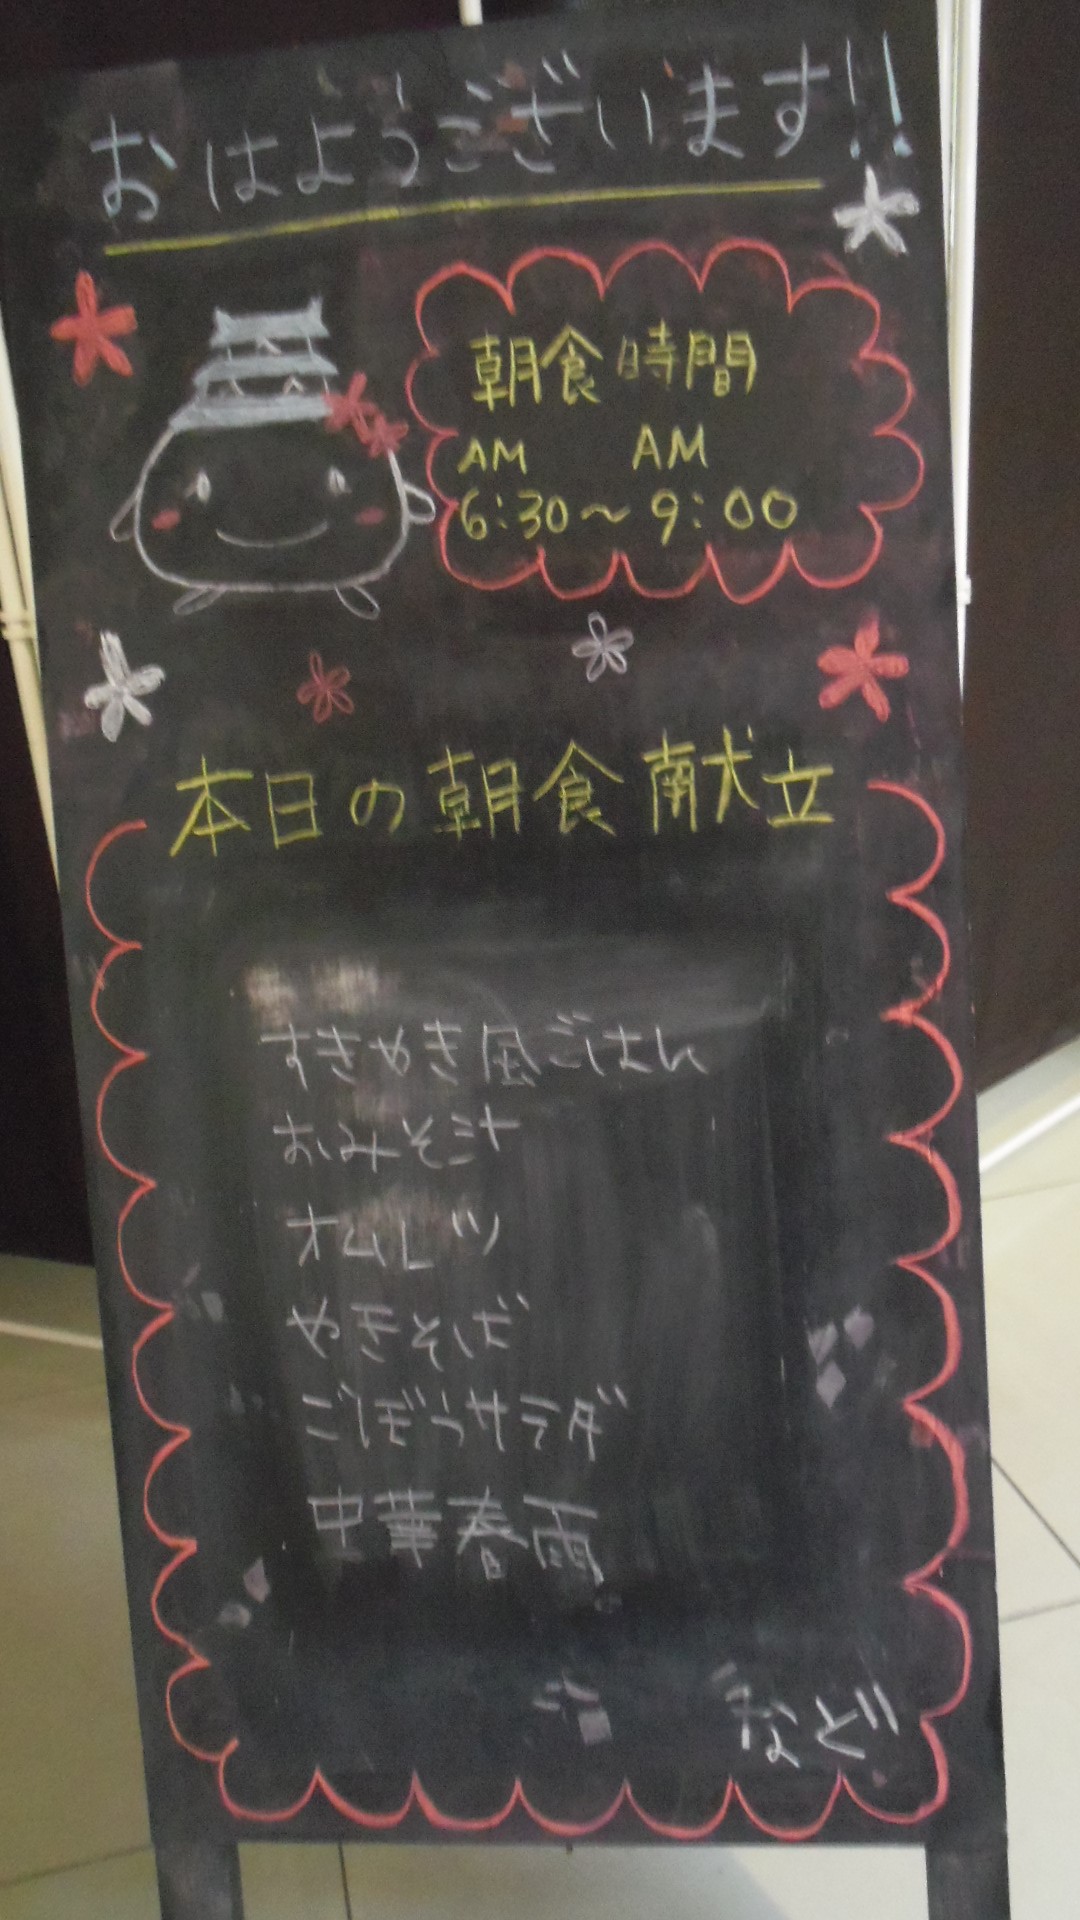 おはようございます!!
朝食時間
AM AM
6:30〜9:00
本日の朝食献立
すきやき風ごはん
おみそ汁
オムレツ
やきそば
ごぼうサラダ
中華春雨
"など"